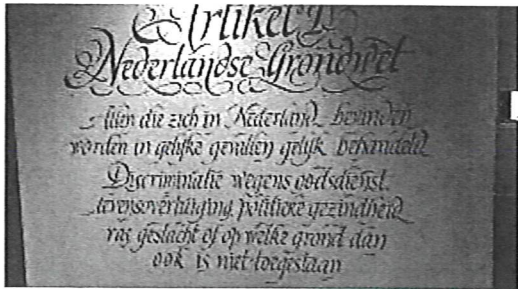 Artikel 1
Nederlandse Grondwet
Allen die zich in Nederland bevinden
worden in gelijke gevallen gelijk behandeld
Discriminatie wegens godsdienst,
levensovertuiging, politieke gezindheid,
ras, geslacht of op welke grond dan
ook is niet toegestaan